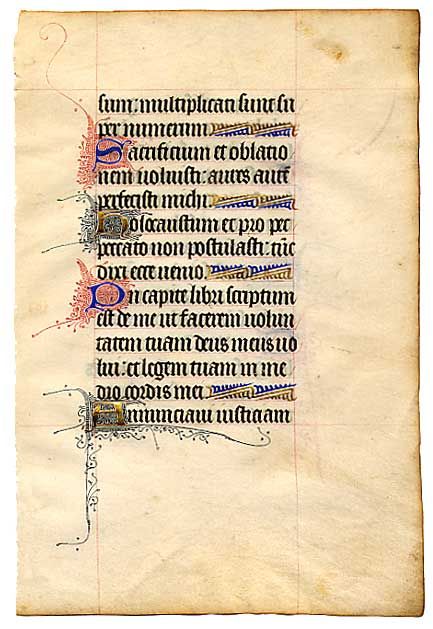 sum: multiplicati sunt su
per numerum
Sacrificium et oblatio
nem noluisti: aures autē
perfecisti michi
Holocaustum et pro pec
peccato non postulasti: tūc
dixi ecce uenio
In capite libri scriptum
est de me ut facerem uolun
tatem tuam deus meus uo
lui: et legem tuam in me
dio cordis mei
Annunciaui iusticiam